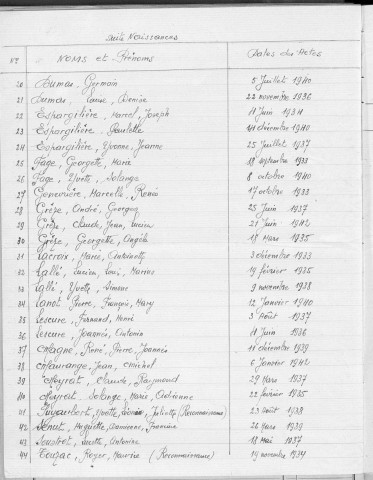 Suite Naissances
N° NOMS et Prénoms Dates des Actes
20 Dumas, Germain 5 Juillet 1940
21 Dumas, Denise 22 novembre 1936
22 Espargilière, Marcel, Joseph 11 Juin 1934
23 Espargilière, Paulette 14 décembre 1940
24 Espargilière, Yvonne, Jeanne 25 Juillet 1937
25 Fage, Georgette, Marie 18 septembre 1933
26 Fage, Yvette, Solange 8 octobre 1940
27 Genevrière, Marcelle, Renée 17 octobre 1933
28 Grèze, André, Georges 25 Juin 1937
29 Grèze, Claude, Jean, Lucien 21 Juin 1942
30 Grèze, Georgette, Angèle 18 Mars 1935
31 Lacroix, Marie, Antoinette 3 décembre 1933
32 Lallé, Lucien, Louis, Marius 19 février 1935
33 Lallé, Yvette, Simone 9 novembre 1938
34 Lanot, Pierre, François, Mary 12 Janvier 1940
35 Lescure, Fernand, Henri 3 Août 1937
36 Lescure, Joannès, Antonin 11 Juin 1936
37 Magne, René, Pierre, Joannès 11 décembre 1939
38 Maurange, Jean, Michel 6 Janvier 1942
39 Meyret, Claude, Raymond 29 Mars 1937
40 Meyret, Solange, Marie, Adrienne 22 février 1935
41 Yvette, Juliette (Reconnaissance) 23 Août 1938
42 Huguette, Damienne, Francine 26 Mars 1939
43 Soustrot, Lucette, Antonine 18 Mai 1937
44 Touzac, Roger, Maurice (Reconnaissance) 19 novembre 1934